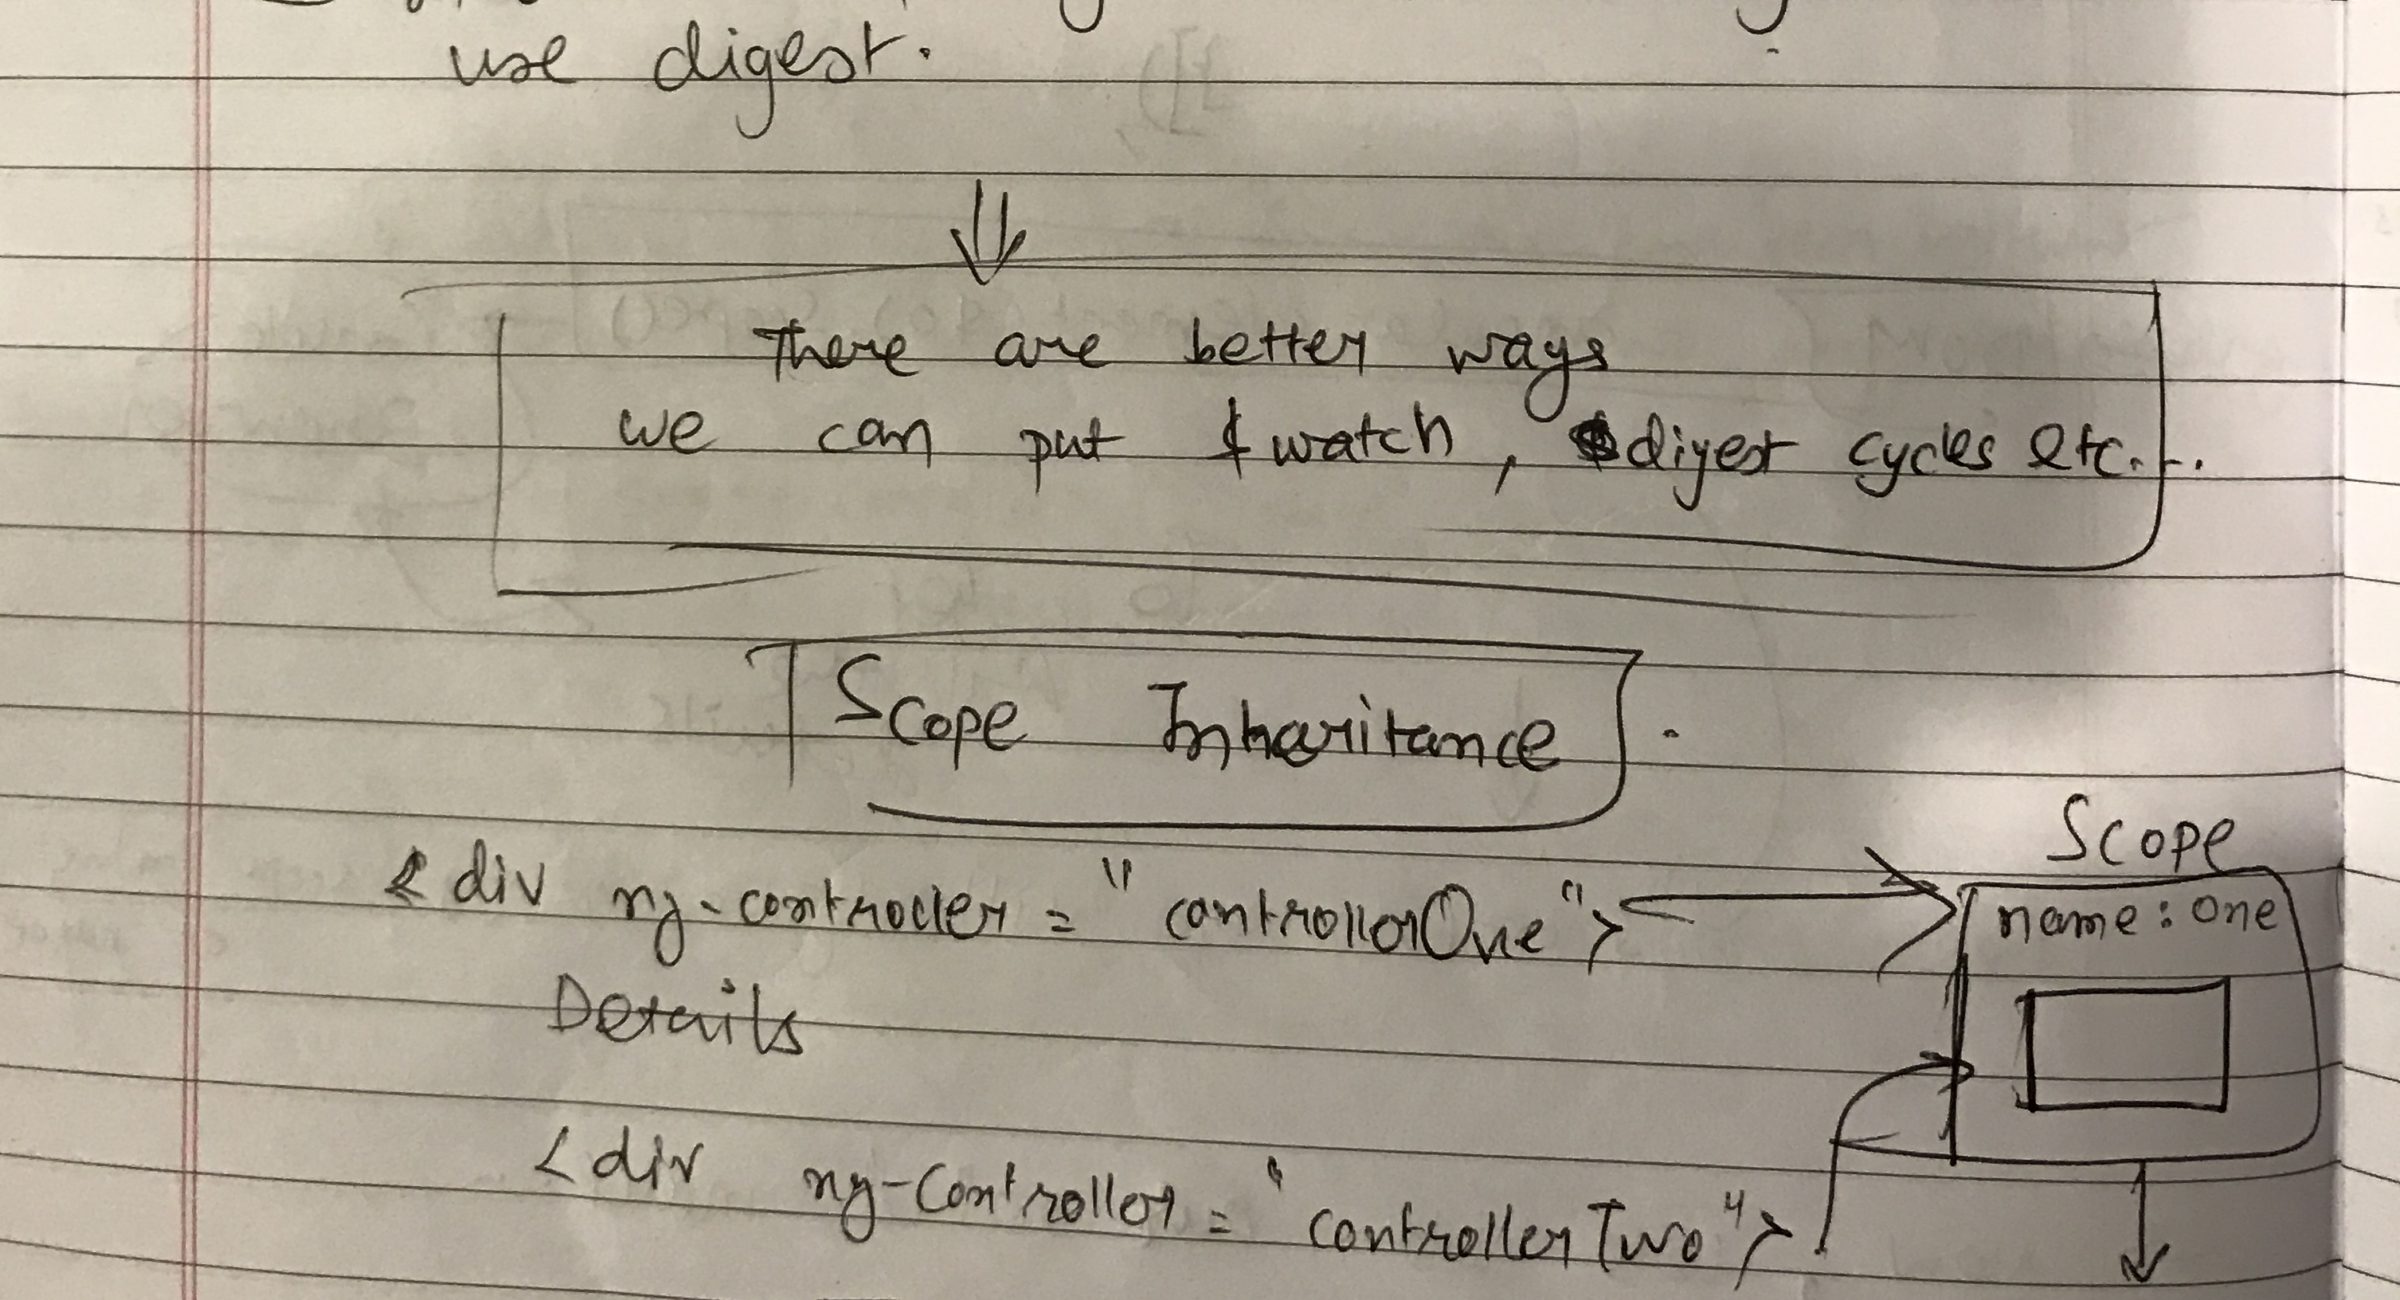 use digest.
There are better ways
we can put $watch, $digest cycles etc...
Scope Inharitance.
Scope
<div ng-controller = "controllerOne">
name: one
Details
<div ng-Controller = "controllerTwo">